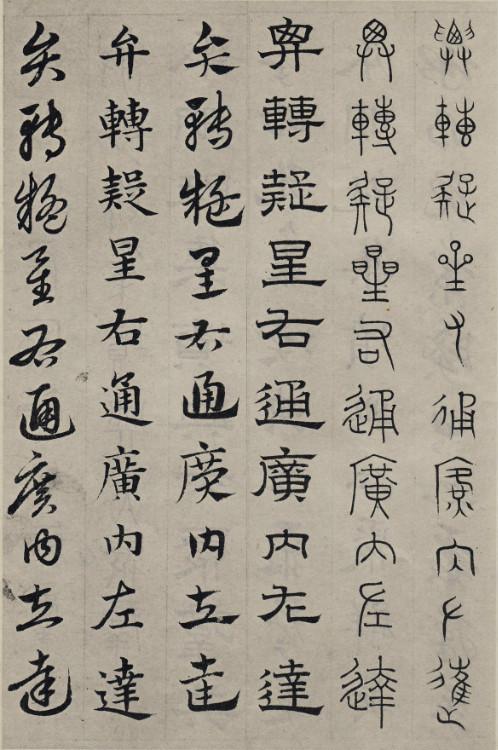 弁轉疑星右通廣內左達
弁轉疑星右通廣內左達
弁轉疑星右通廣內左達
弁轉疑星右通廣內左達
弁轉疑星右通廣內左達
弁轉疑星右通廣內左達